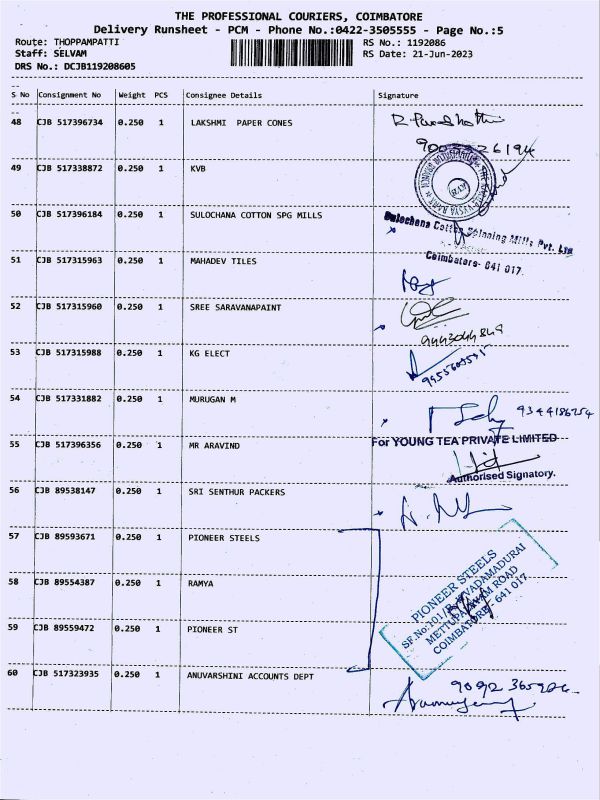 THE PROFESSIONAL COURIERS, COIMBATORE
Delivery Runsheet - PCM - Phone No.:0422-3505555 - Page No.:5
Route: THOPPAMPATTI RS No.: 1192086
Staff: SELVAM RS Date: 21-Jun-2023
DRS No.: DCJB119208605
--
S No Consignment No Weight PCS Consignee Details Signature
--
48 CJB 517396734 0.250 1 LAKSHMI PAPER CONES
49 CJB 517338872 0.250 1 KVB
50 CJB 517396184 0.250 1 SULOCHANA COTTON SPG MILLS
Sulochana Cotton Spinning Mills Pvt. Ltd
Coimbatore- 641 017.
51 CJB 517315963 0.250 1 MAHADEV TILES
52 CJB 517315960 0.250 1 SREE SARAVANAPAINT
9443044849
53 CJB 517315988 0.250 1 KG ELECT
54 CJB 517331882 0.250 1 MURUGAN M
9344186254
For YOUNG TEA PRIVATE LIMITED
55 CJB 517396356 0.250 1 MR ARAVIND
Authorised Signatory.
56 CJB 89538147 0.250 1 SRI SENTHUR PACKERS
57 CJB 89593671 0.250 1 PIONEER STEELS
58 CJB 89554387 0.250 1 RAMYA
PIONEER STEELS
SF.No:101/ VADAMADURAI
METTUPALAYAM ROAD
COIMBATORE - 641 017
59 CJB 89559472 0.250 1 PIONEER ST
60 CJB 517323935 0.250 1 ANUVARSHINI ACCOUNTS DEPT